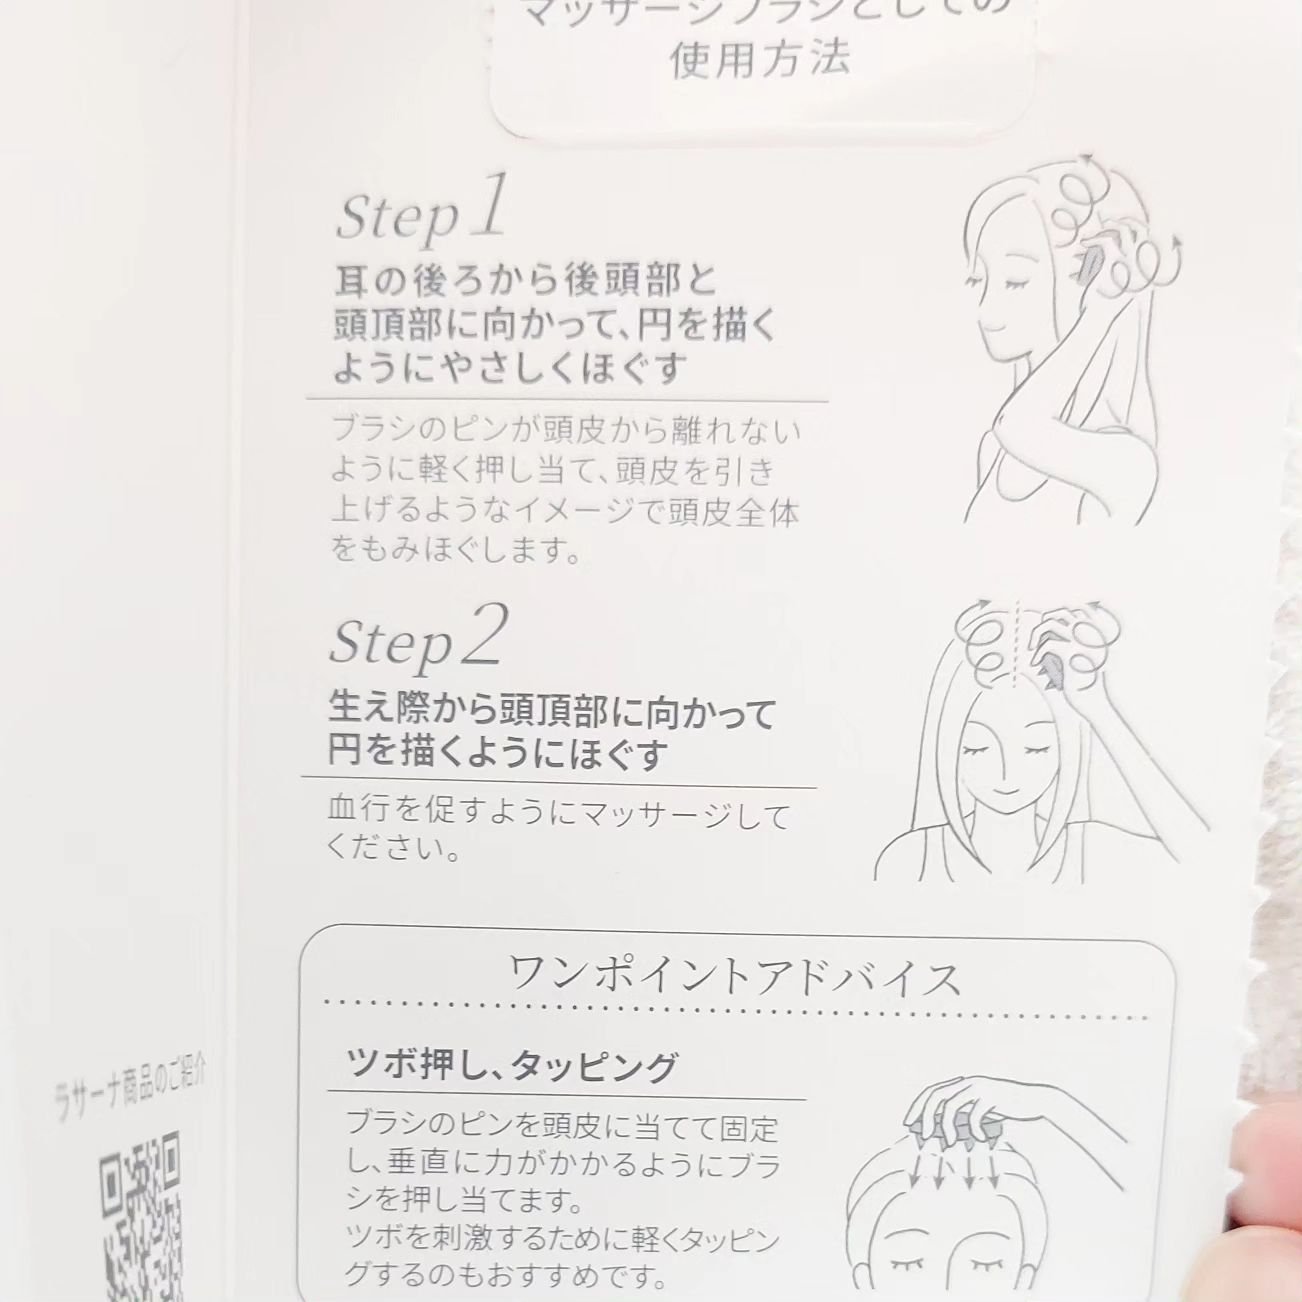 マッサージブラシとしての
使用方法
Step 1
耳の後ろから後頭部と
頭頂部に向かって、円を描く
ようにやさしくほぐす
ブラシのピンが頭皮から離れない
ように軽く押し当て、頭皮を引き
上げるようなイメージで頭皮全体
をもみほぐします。
Step 2
生え際から頭頂部に向かって
円を描くようにほぐす
血行を促すようにマッサージして
ください。
ワンポイントアドバイス
ツボ押し、タッピング
ブラシのピンを頭皮に当てて固定
し、垂直に力がかかるようにブラ
シを押し当てます。
ツボを刺激するために軽くタッピン
グするのもおすすめです。
ラサーナ商品のご紹介